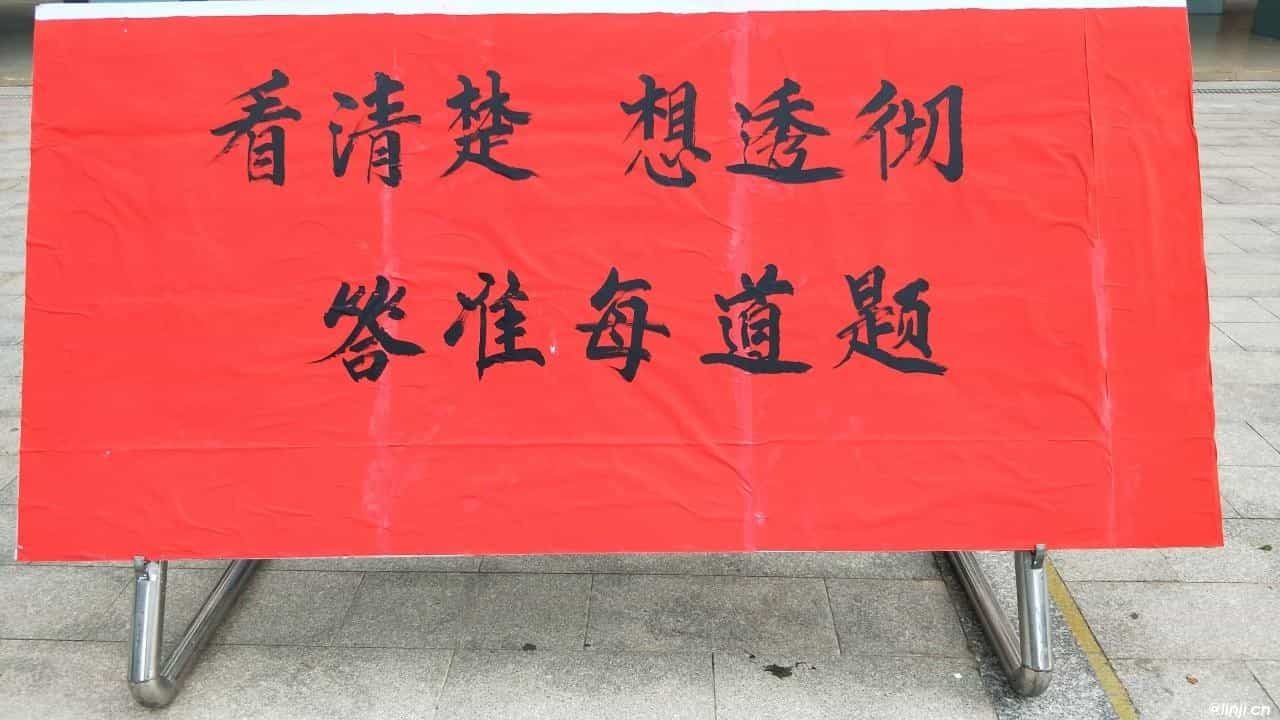 看清楚 想透彻
答准每道题
@linji.cn